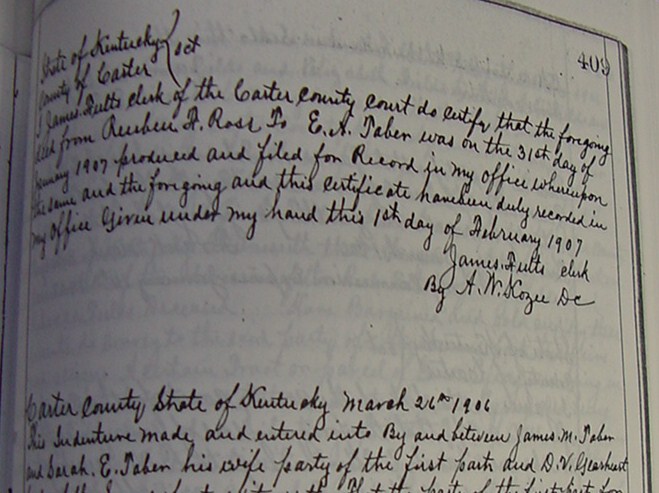 409
State of Kentucky
County of Carter } sct
I James Fults clerk of the Carter county court do certify that the foregoing
deed from Reuben F. Ross To E. A. Taben was on the 31st day of
January 1907 produced and filed for Record in my office whereupon
the same and the foregoing and this certificate have been duly recorded in
my office Given under my hand this 1st day of February 1907
James Fults clerk
By A. W. Kozee DC
Carter County State of Kentucky March 26th 1906
This Indenture made and entered into By and between James M. Taben
and Sarah. E. Taben his wife party of the first part and D. V. Gearheart
the part of the first part for